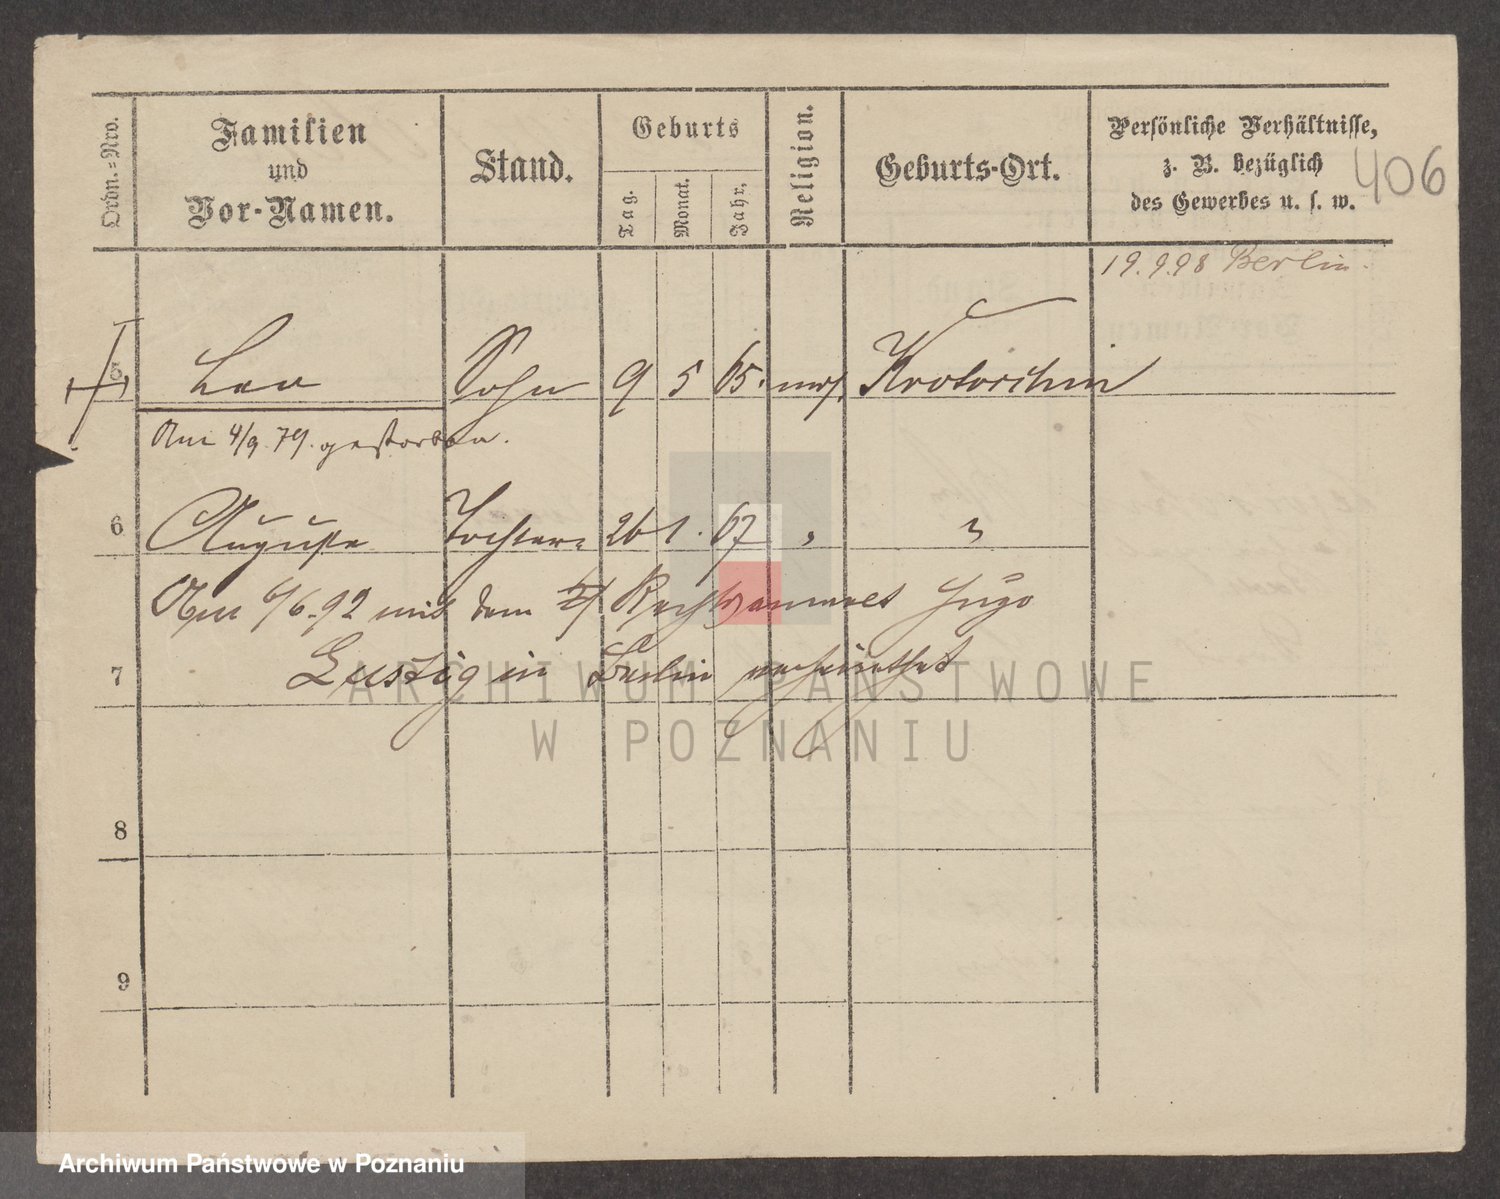 Ordn.-Nro.
Familien
und
Vor-Namen.
Stand.
Geburts
Tag.
Monat.
Jahr.
Religion.
Geburts-Ort.
Persönliche Verhältnisse,
z. B. bezüglich
des Gewerbes u. s. w.
406
19.9.98 Berlin.
5 Leo Sohn 9 5 65. mos. Krotoschin
Am 4/9. 79. gestorben.
6 Auguste Tochter 26 1. 67 " "
Am 6/6. 92 mit dem Rechtsanwalt Hugo
7 Lustig in Berlin verheirathet
8
9
ARCHIWUM PAŃSTWOWE
W POZNANIU
Archiwum Państwowe w Poznaniu